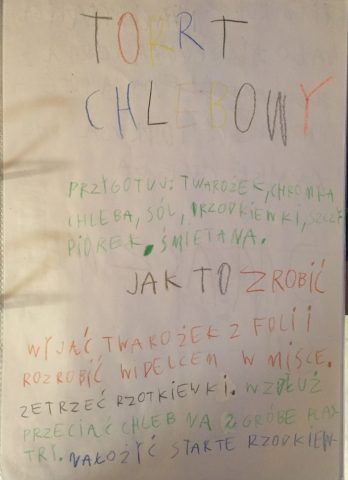 TORRT
CHLEBOWY
PRZYGOTUJ: TWAROŻEK, CHROMKA
CHLEBA, SÓL, RZODKIEWKI, SZCZY
PIOREK, ŚMIETANA.
JAK TO ZROBIĆ
WYJĄĆ TWAROŻEK Z FOLII
ROZROBIĆ WIDELCEM W MISCE.
ZETRZEĆ RZOTKIEWKI. WZDŁUŻ
PRZECIĄĆ CHLEB NA 2 GRÓBE PLAS
TRY. NAŁOŻYĆ STARTE RZODKIEW-